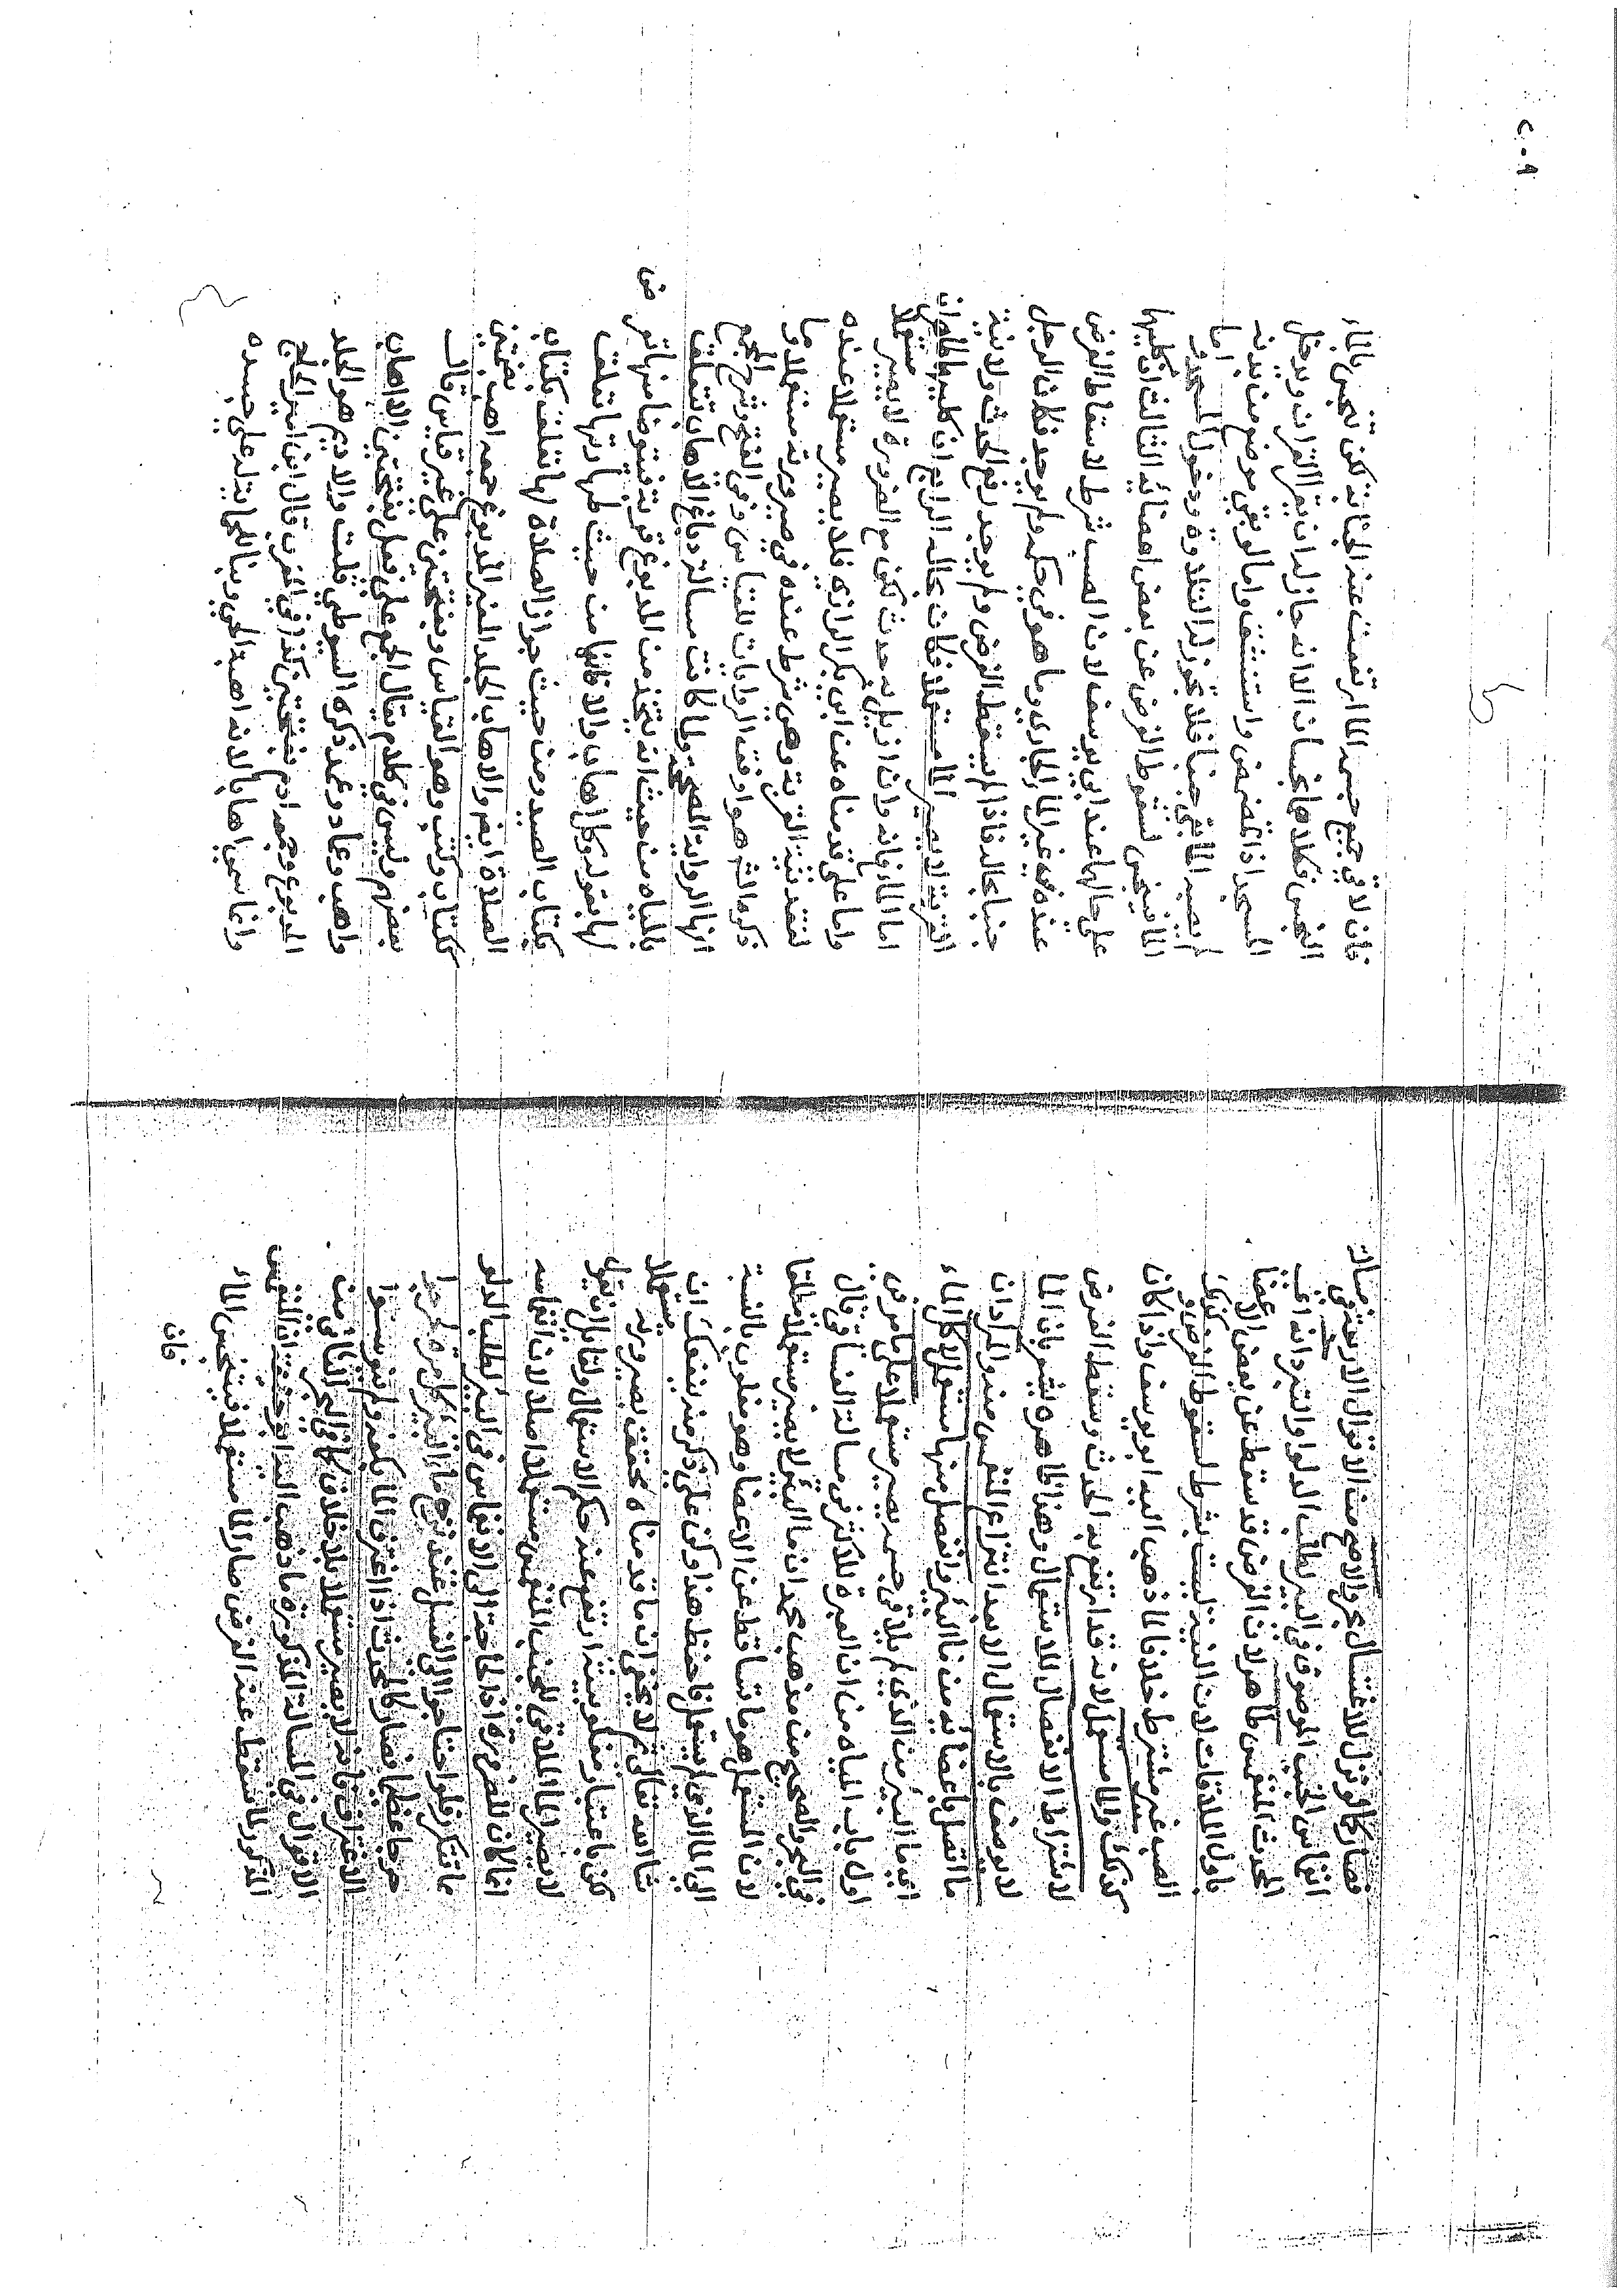 فصار كما لو نزل للاغتسال بحر والاصح من الاقوال الاربعة في مسالة
انغماس الجنب الموصوف في البير لطلب الدلو او التبرد انه اي
المحدث المنغمس طاهر لان الفرض قد سقط عن بعض الاعضا
باول الملاقات لان النية ليست بشرط لسقوط الفرض وكذلك
الصب غير مشترط خلافا لما ذهب اليه ابو يوسف واذا كان
كذلك والما مستعمل لانه قد ارتفع به الحدث وسقط الفرض
لاشتراط الانفصال للاستعمال وهذا ظاهره يشير بان الما
لا يوصف بالاستعمال الا بعد انتزاع المنغمس منه والمراد ان
ما اتصل باعضائه من ماء البير وانفصل منها مستعمل لا كل الماء
اي ماء البئر من الذي لم يلاق جسده يصير مستعملا على ما مر في
اول باب المياه من ان العبرة للاكثر في مسالة الفساقي قال
في البحر والصحيح من مذهب محمد ان ما البئر لا يصير مستعملا مطلقا
لان المستعمل هو ما تساقط عن الاعضا وهو مغلوب بالنسبة
الى الما الذي لم يستعمل فاحفظ هذا وكن على ذكر منه ينفعك ان
شا الله تعالى ثم لا يخفى ان ما قدمناه تحقق بصيرورته مستعملا
لكن باعتبار مغلوبيته ارتفع عنه حكم الاستعمال ولقائل ان يقول
لا يصير الما الملاقي للجنب المنغمس مستعملا اصلا لان انغماسه
اذا كان للضرورة اذ الحاجة الى الانغماس في البير لطلب الدلو
ما تتكرر فلو احتاجوا الى الغسل عند نزح ما البير كل مرة لحرجوا
حرجا عظيما فصار كالمحدث اذا اغترف الما بكفه ولم ينو
الاغتراف فانه لا يصير مستعملا بلا خلاف كما في البحر الثاني من
الاقوال في المسالة المذكورة ما ذهب اليه ابو حنيفة ان المنغمس
المذكور لما سقط عنه الفرض صار الما مستعملا فيتنجس الماء
فان
٢٠٩
فان لاقي جميع جسد الما ارتفعت عنه الجنابة لكن تنجس بالماء
النجس فكلاهما نجسان الا انه جاز له ان يقرا القران ويدخل
المسجد اذا تمضمض واستنشق واما لو بقي موضع من بدنه
لم يصبه الما بقي جنبا فلا تجوز له التلاوة ودخول المسجد و
الما فينجس لسقوط الفرض عن بعض اعضائه الثالث ان كليهما
على حالهما عند ابي يوسف لان الصب شرط لاسقاط الفرض
عنده في غير الماء الجاري وما هو في حكمه ولم يوجد فكان الرجل
جنبا بحاله فاذا لم يسقط الفرض ولم يوجد رفع الحدث ولا نية
القربة لا يصير الما مستعملا فكان بحاله الرابع ان كليهما طاهران
اما الما فانه وان ازيل به حدث لكن مع الضرورة لا يصير مستعملا
واما على قدمناه عن ابي بكر الرازي فلا يصير مستعملا عنده
لفقد نية القربة وهي شرط عنده في صيرورته مستعملا وما
ذكره الش هو اوفق الروايات للقياس وفي الفتح وشرح المجمع
انها الرواية المصححة ولما كانت مسالة دباغ الاهاب تتعلق
بالمياه من حيث انه يتخذ من المدبوغ قربة فيتوضا منها ثم في
لها بقوله وكل اهاب والا فانها من حيث طهارتها تتعلق
بكتاب الصيد ومن حيث جواز الصلاة لها تعلق بكتاب
الصلاة ايضا والاهاب الجلد الغير المدبوغ جمعه اهب بضمتين
ككتاب وكتب وهو القياس وبفتحتين على غير قياس قال
بعضهم وليس في كلام يقال الجمع على فعل بفتحتين الا اهاب
واهب وعماد وعمد ذكره السيوطي قلت والاديم هو الجلد
المدبوغ وجمعه ادم بفتحتين كذا في المغرب قال ابن امير الحاج
وانما سمي اهابا لانه اهبة للحي وبنا للحماية له على جسده